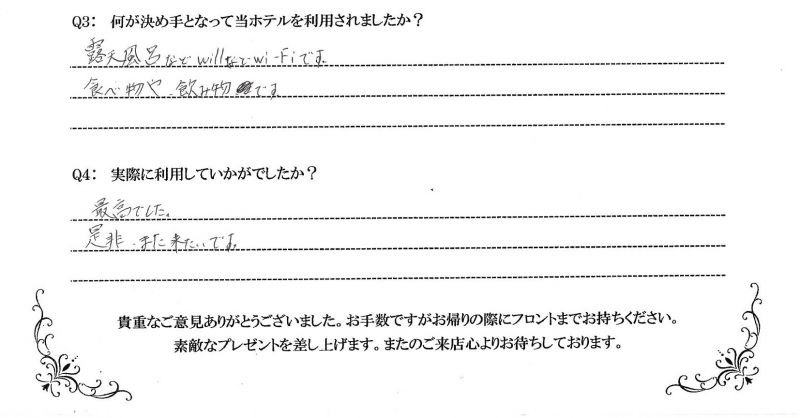 Q3： 何が決め手となって当ホテルを利用されましたか？
露天風呂などwillなどwi-Fiです。
食べ物や、飲み物です
Q4： 実際に利用していかがでしたか？
最高でした。
是非、また来たいです。
貴重なご意見ありがとうございました。お手数ですがお帰りの際にフロントまでお持ちください。
素敵なプレゼントを差し上げます。またのご来店心よりお待ちしております。